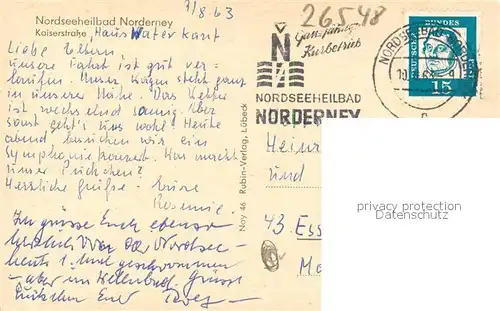 7/8 63
26.5.48
Nordseeheilbad Norderney
Kaiserstraße
Haus Waterkant
Liebe Eltern,
unsere Fahrt ist gut ver-
laufen. Unser Wagen steht ganz
in unserer Nähe. Das Wetter
ist wechselnd sonnig. Aber
sonst geht's uns wohl. Heute
abend, besuchen wir ein
Symphoniekonzert. Was macht
unser
Herzliche Grüße. Eure
Rosemie.
Ich grüsse Euch ebenso
herzlich von der Nordsee
heute 1. Mal geschwommen
- aber im Wellenbad. Grüsst
Euer
Noy 46 Rubin-Verlag, Lübeck
Ganzjährig
Kurbetrieb
N
NORDSEEHEILBAD
NORDERNEY
NORDSEEBAD
DEUTSCHE BUNDESPOST
15
Heinr
und
43 Ess
privacy protection
Datenschutz